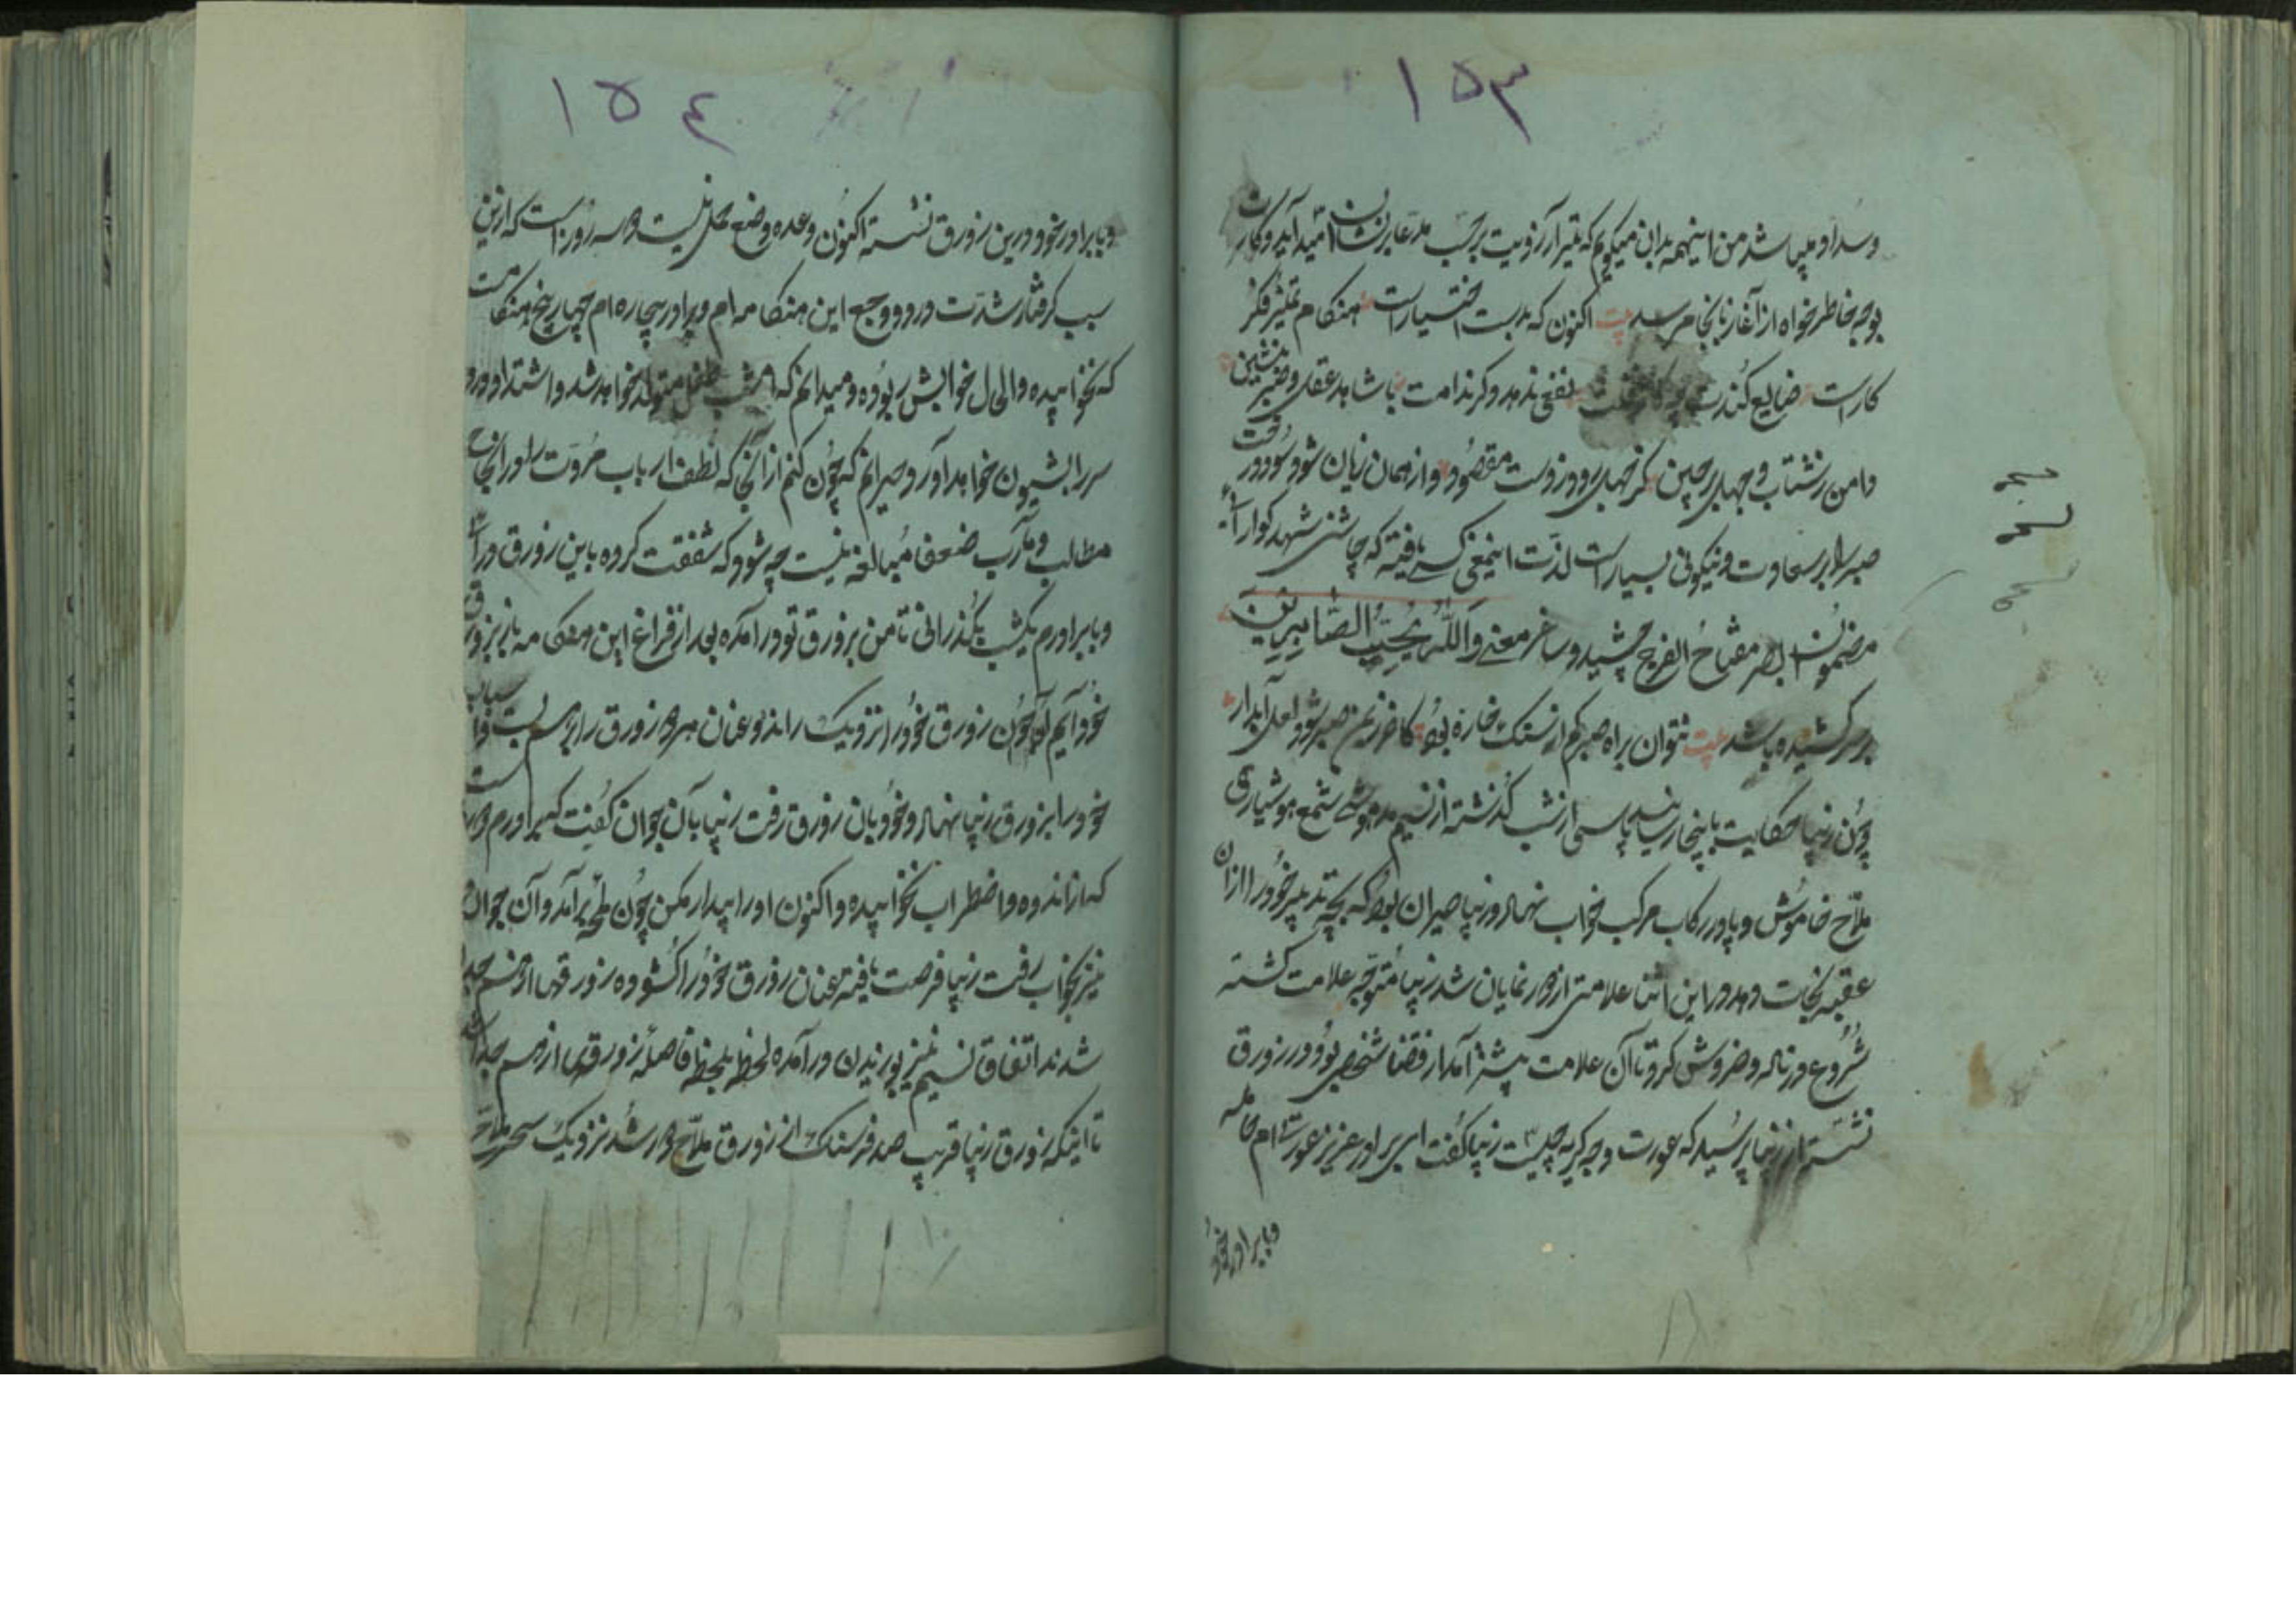 ١٥٣
من اینهمه بدان میکویم که تیر آرزویت برحسب مدعا بر نشان امید آید و کارت
بوجه خاطرخواه از آغاز بانجام رسد بیت اکنون که بدست اختیار است هنکام
کار است ضایع کند نفعی ندهد وکرند امت شاهد عقل و صبر نشین
دامن زشتاب و جهل برچین کز جهل رود ز دست مقصود و از همان زیان شود سود
صبر را بر سعادت و نیکوئی بسیار است لذت اینمعنی کسی یافته که چاشنی شهد کوارای
مضمون الصبر مفتاح الفرج چشیده و ساغر معنی وَاللّٰهُ يُحِبُّ الصَّابِرِينَ
بر سر کشیده باشد بیت نتوان براه صبر کم از سنک خاره بود کاخر زیمن صبر شود لعل آبدار
چون زیبا حکایت باینجا رسانید پاسی از شب کذشته از نسیم مدهوشی شمع هوشیاری
ملاح خاموش و پا در رکاب مرکب خواب نهاد و زیبا حیران بود که بچه تدبیر خود را از ان
عقبه نجات دهد در این اثنا علامتی از دور نمایان شد زیبا متوجه علامت کشته
شروع در ناله و خروش کرد تا آن علامت پیشتر آمد از قضا شخصی بود در زورق
نشسته از زیبا پرسید که عورت وجه کریه چیست زیبا کفت ای برادر عزیز عورت‌ام حامله
و با برادر خود
١٥٤
و با برادر خود درین زورق نشسته اکنون وعده وضع حمل نیست و سه روز است که ازین
سبب کرفتار شدت درد و وجع این هنکامه‌ام و برادر بیچاره‌ام چهار پنج هنکامست
که نخوابیده والحال خوابش ربوده و میدانم که امشب طفل متولد خواهد شد و اشتداد درد
سر را بشیون خواهد آورد و حیرانم که چون کنم از آنجا که لطف ارباب مروت را در انجاح
مطالب و مآرب ضعفا مبالغه نیست چه شود که شفقت کرده باین زورق در آئی
و با برادرم یکشب بکذرانی تا من بزورق تو در آمده بعد از فراغ این هنکامه باز بزورق
خود آیم آن جوان زورق خود را نزدیک راند و عنان هر دو زورق را بهم بست و
خود را بزورق زیبا نهاد و خود بان زورق رفت زیبا بآن جوان کفت که برادرم
که از اندوه و اضطراب نخوابیده و اکنون او را بیدار مکن چون لمحه برآمد و آن جوان
نیز بخواب رفت زیبا فرصت یافته عنان زورق خود را کشوده زورقها از هم جدا
شدند اتفاقا نسیم نیز بوزیدن در آمده لحظه بلحظه فاصله زورقها از هم
تا اینکه زورق زیبا قریب صد فرسنک از زورق ملاح دور شد نزدیک سحر ملاح